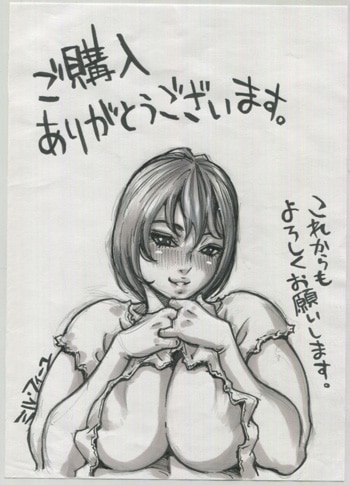 ご購入
ありがとうございます。
これからも
よろしくお願いします。
ミル・フィーユ